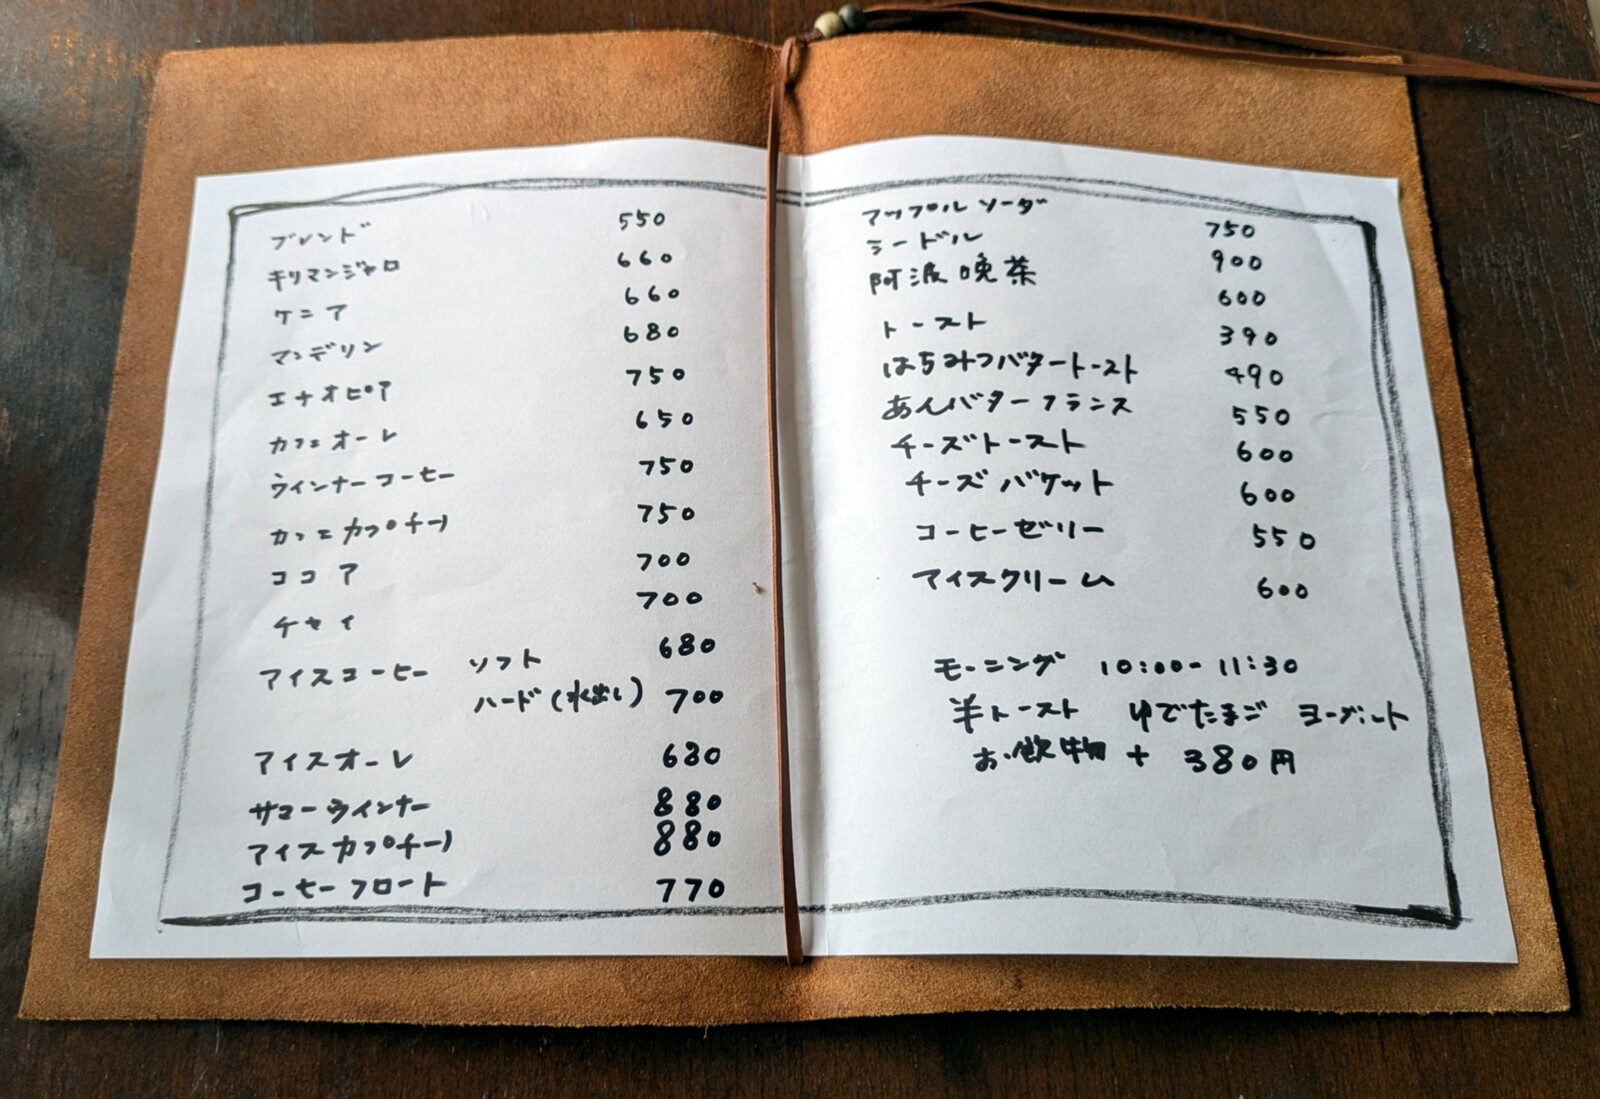 ブレンド 550
キリマンジャロ 660
ケニア 660
マンデリン 680
エチオピア 750
カフェオーレ 650
ウインナーコーヒー 750
カフェカプチーノ 750
ココア 700
チャイ 700
アイスコーヒー ソフト 680
ハード(水出し) 700
アイスオーレ 680
サマーウインナー 880
アイスカプチーノ 880
コーヒーフロート 770
アップルソーダ 750
シードル 900
阿波晩茶 600
トースト 390
はちみつバタートースト 490
あんバターフランス 550
チーズトースト 600
チーズバケット 600
コーヒーゼリー 550
アイスクリーム 600
モーニング 10:00-11:30
半トースト ゆでたまご ヨーグルト
お飲物 + 380円